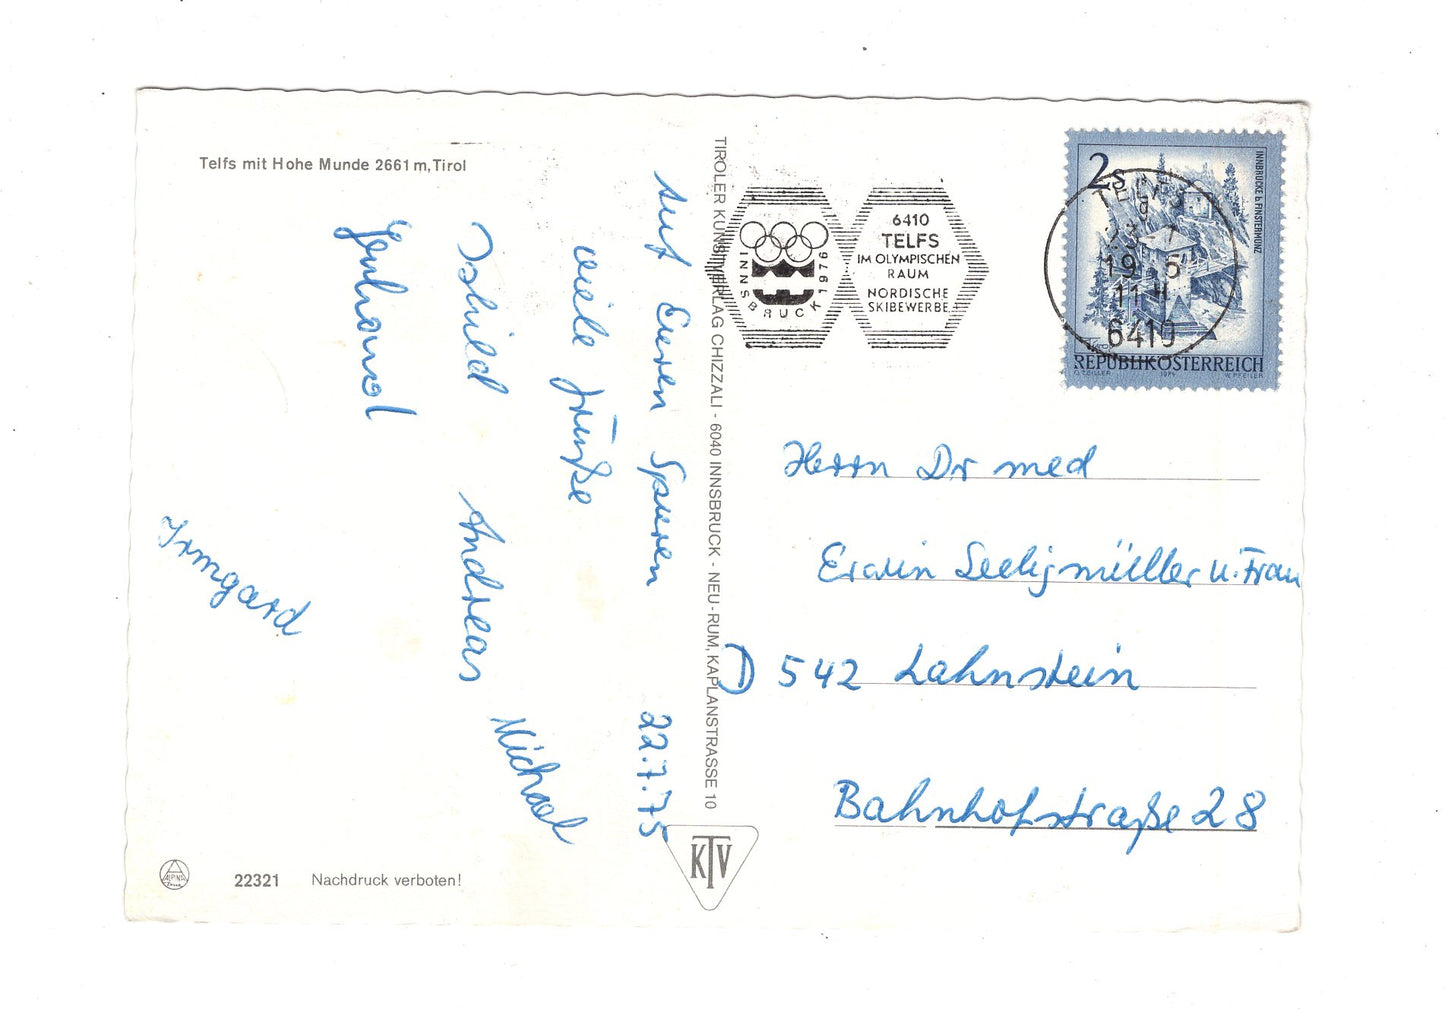 Telfs mit Hohe Munde 2661 m, Tirol
Auf Euren Spuren 22.7.75
viele Grüße
Ishild Andreas Michael
Gerhard
Irmgard
22321 Nachdruck verboten!
TIROLER KUNSTVERLAG CHIZZALI - 6040 INNSBRUCK - NEU-RUM, KAPLANSTRASSE 10
KTV
INNSBRUCK 1976
6410
TELFS
IM OLYMPISCHEN
RAUM
NORDISCHE
SKIBEWERBE
2S
INNBRÜCKE b. FINSTERMÜNZ
TELFS
19 75
11 H
6410
REPUBLIK ÖSTERREICH
O. ZEILLER 1974 W. PFEILER
Herrn Dr med
Erwin Seeligmüller u. Frau
D 542 Lahnstein
Bahnhofstraße 28